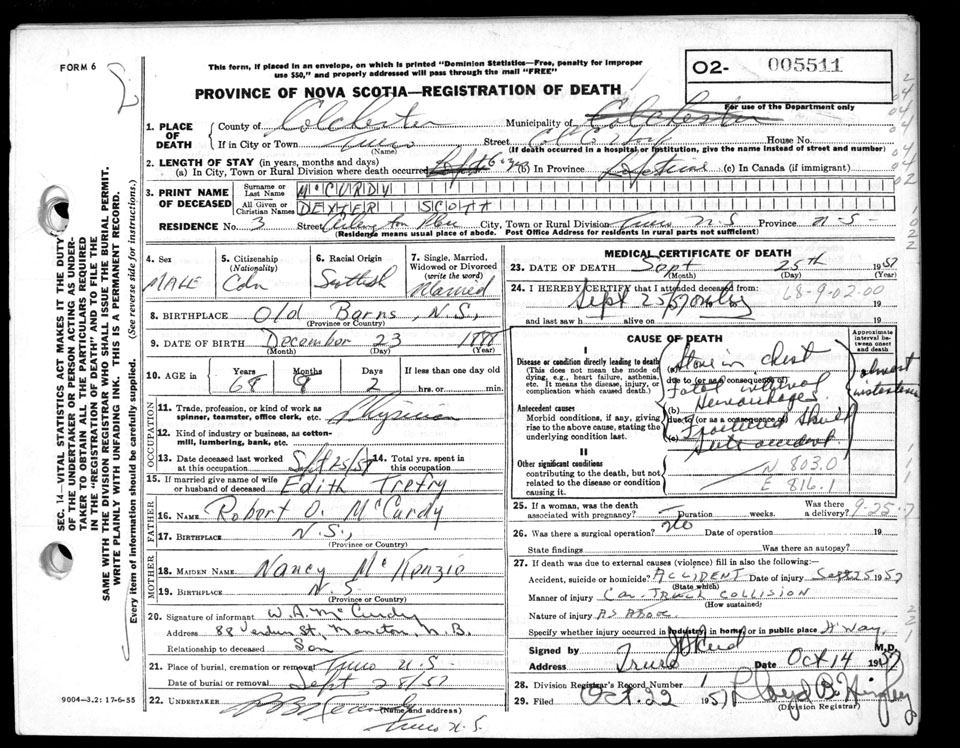 FORM 6
This form, if placed in an envelope, on which is printed "Dominion Statistics—Free, penalty for improper
use $50," and properly addressed will pass through the mail "FREE"
O2- 005511
PROVINCE OF NOVA SCOTIA—REGISTRATION OF DEATH
For use of the Department only
1. PLACE OF DEATH
County of Colchester Municipality of Colchester
If in City or Town Truro Street House No.
(Name) (If death occurred in a hospital or institution, give the name instead of street and number)
2. LENGTH OF STAY (in years, months and days)
(a) In City, Town or Rural Division where death occurred (b) In Province Lifetime (c) In Canada (if immigrant)
3. PRINT NAME OF DECEASED
Surname or Last Name McCURDY
All Given or Christian Names DEXTER SCOTT
RESIDENCE No. 3 Street Place City, Town or Rural Division Truro N.S Province N-S-
(Residence means usual place of abode. Post Office Address for residents in rural parts not sufficient)
4. Sex MALE
5. Citizenship (Nationality) Cdn
6. Racial Origin Scottish
7. Single, Married, Widowed or Divorced (write the word) Married
8. BIRTHPLACE Old Barns, N.S.,
(Province or Country)
9. DATE OF BIRTH December 23 1888
(Month) (Day) (Year)
10. AGE in Years 68 Months 9 Days 2 If less than one day old hrs. or min.
OCCUPATION
11. Trade, profession, or kind of work as spinner, teamster, office clerk, etc. Physician
12. Kind of industry or business, as cotton-mill, lumbering, bank, etc.
13. Date deceased last worked at this occupation Sept 25/57
14. Total yrs. spent in this occupation
15. If married give name of wife or husband of deceased Edith Tretry
FATHER
16. NAME Robert O. McCurdy
17. BIRTHPLACE N.S.,
(Province or Country)
MOTHER
18. MAIDEN NAME Nancy McKenzie
19. BIRTHPLACE N.S
(Province or Country)
20. Signature of informant W.A. McCurdy
Address 88 St, Moncton, N.B.
Relationship to deceased Son
21. Place of burial, cremation or removal Truro N.S.
Date of burial or removal Sept 28/57
22. UNDERTAKER
(Name and address)
Truro N.S.
9004—3.2: 17-6-55
MEDICAL CERTIFICATE OF DEATH
23. DATE OF DEATH Sept 25th 1957
(Year)
24. I HEREBY CERTIFY that I attended deceased from:
Sept 25/57 68-9-02-00 19
and last saw h alive on 19
CAUSE OF DEATH
Approximate interval between onset and death
I
Disease or condition directly leading to death
(This does not mean the mode of dying, e.g., heart failure, asthenia, etc. It means the disease, injury, or complication which caused death.)
(a) Stove in chest
due to (or as a consequence of)
Fatal internal
Hemorrhages
almost instantaneous
Antecedent causes
Morbid conditions, if any, giving rise to the above cause, stating the underlying condition last.
(b)
due to (or as a consequence of)
Fractured Skull
(c) Auto accident
II
Other significant conditions
contributing to the death, but not related to the disease or condition causing it.
N 803.0
E 816.1
25. If a woman, was the death associated with pregnancy? Duration weeks. Was there a delivery?
9-25-7
26. Was there a surgical operation? No Date of operation 19
State findings Was there an autopsy?
27. If death was due to external causes (violence) fill in also the following:
Accident, suicide or homicide? ACCIDENT Date of injury Sept 25 1957
(State which)
Manner of injury Car-TRUCK COLLISION
(How sustained)
Nature of injury AS ABOVE
Specify whether injury occurred in industry, in home, or in public place H'Way.
Signed by M.D.
Address Truro Date Oct 14 1957
28. Division Registrar's Record Number 1
29. Filed Oct. 22 1957
(Division Registrar)
SEC. 14—VITAL STATISTICS ACT MAKES IT THE DUTY
OF THE UNDERTAKER OR PERSON ACTING AS UNDER-
TAKER TO OBTAIN ALL THE PARTICULARS REQUIRED
IN THE "REGISTRATION OF DEATH" AND TO FILE THE
SAME WITH THE DIVISION REGISTRAR WHO SHALL ISSUE THE BURIAL PERMIT.
WRITE PLAINLY WITH UNFADING INK. THIS IS A PERMANENT RECORD.
Every item of information should be carefully supplied. (See reverse side for instructions.)